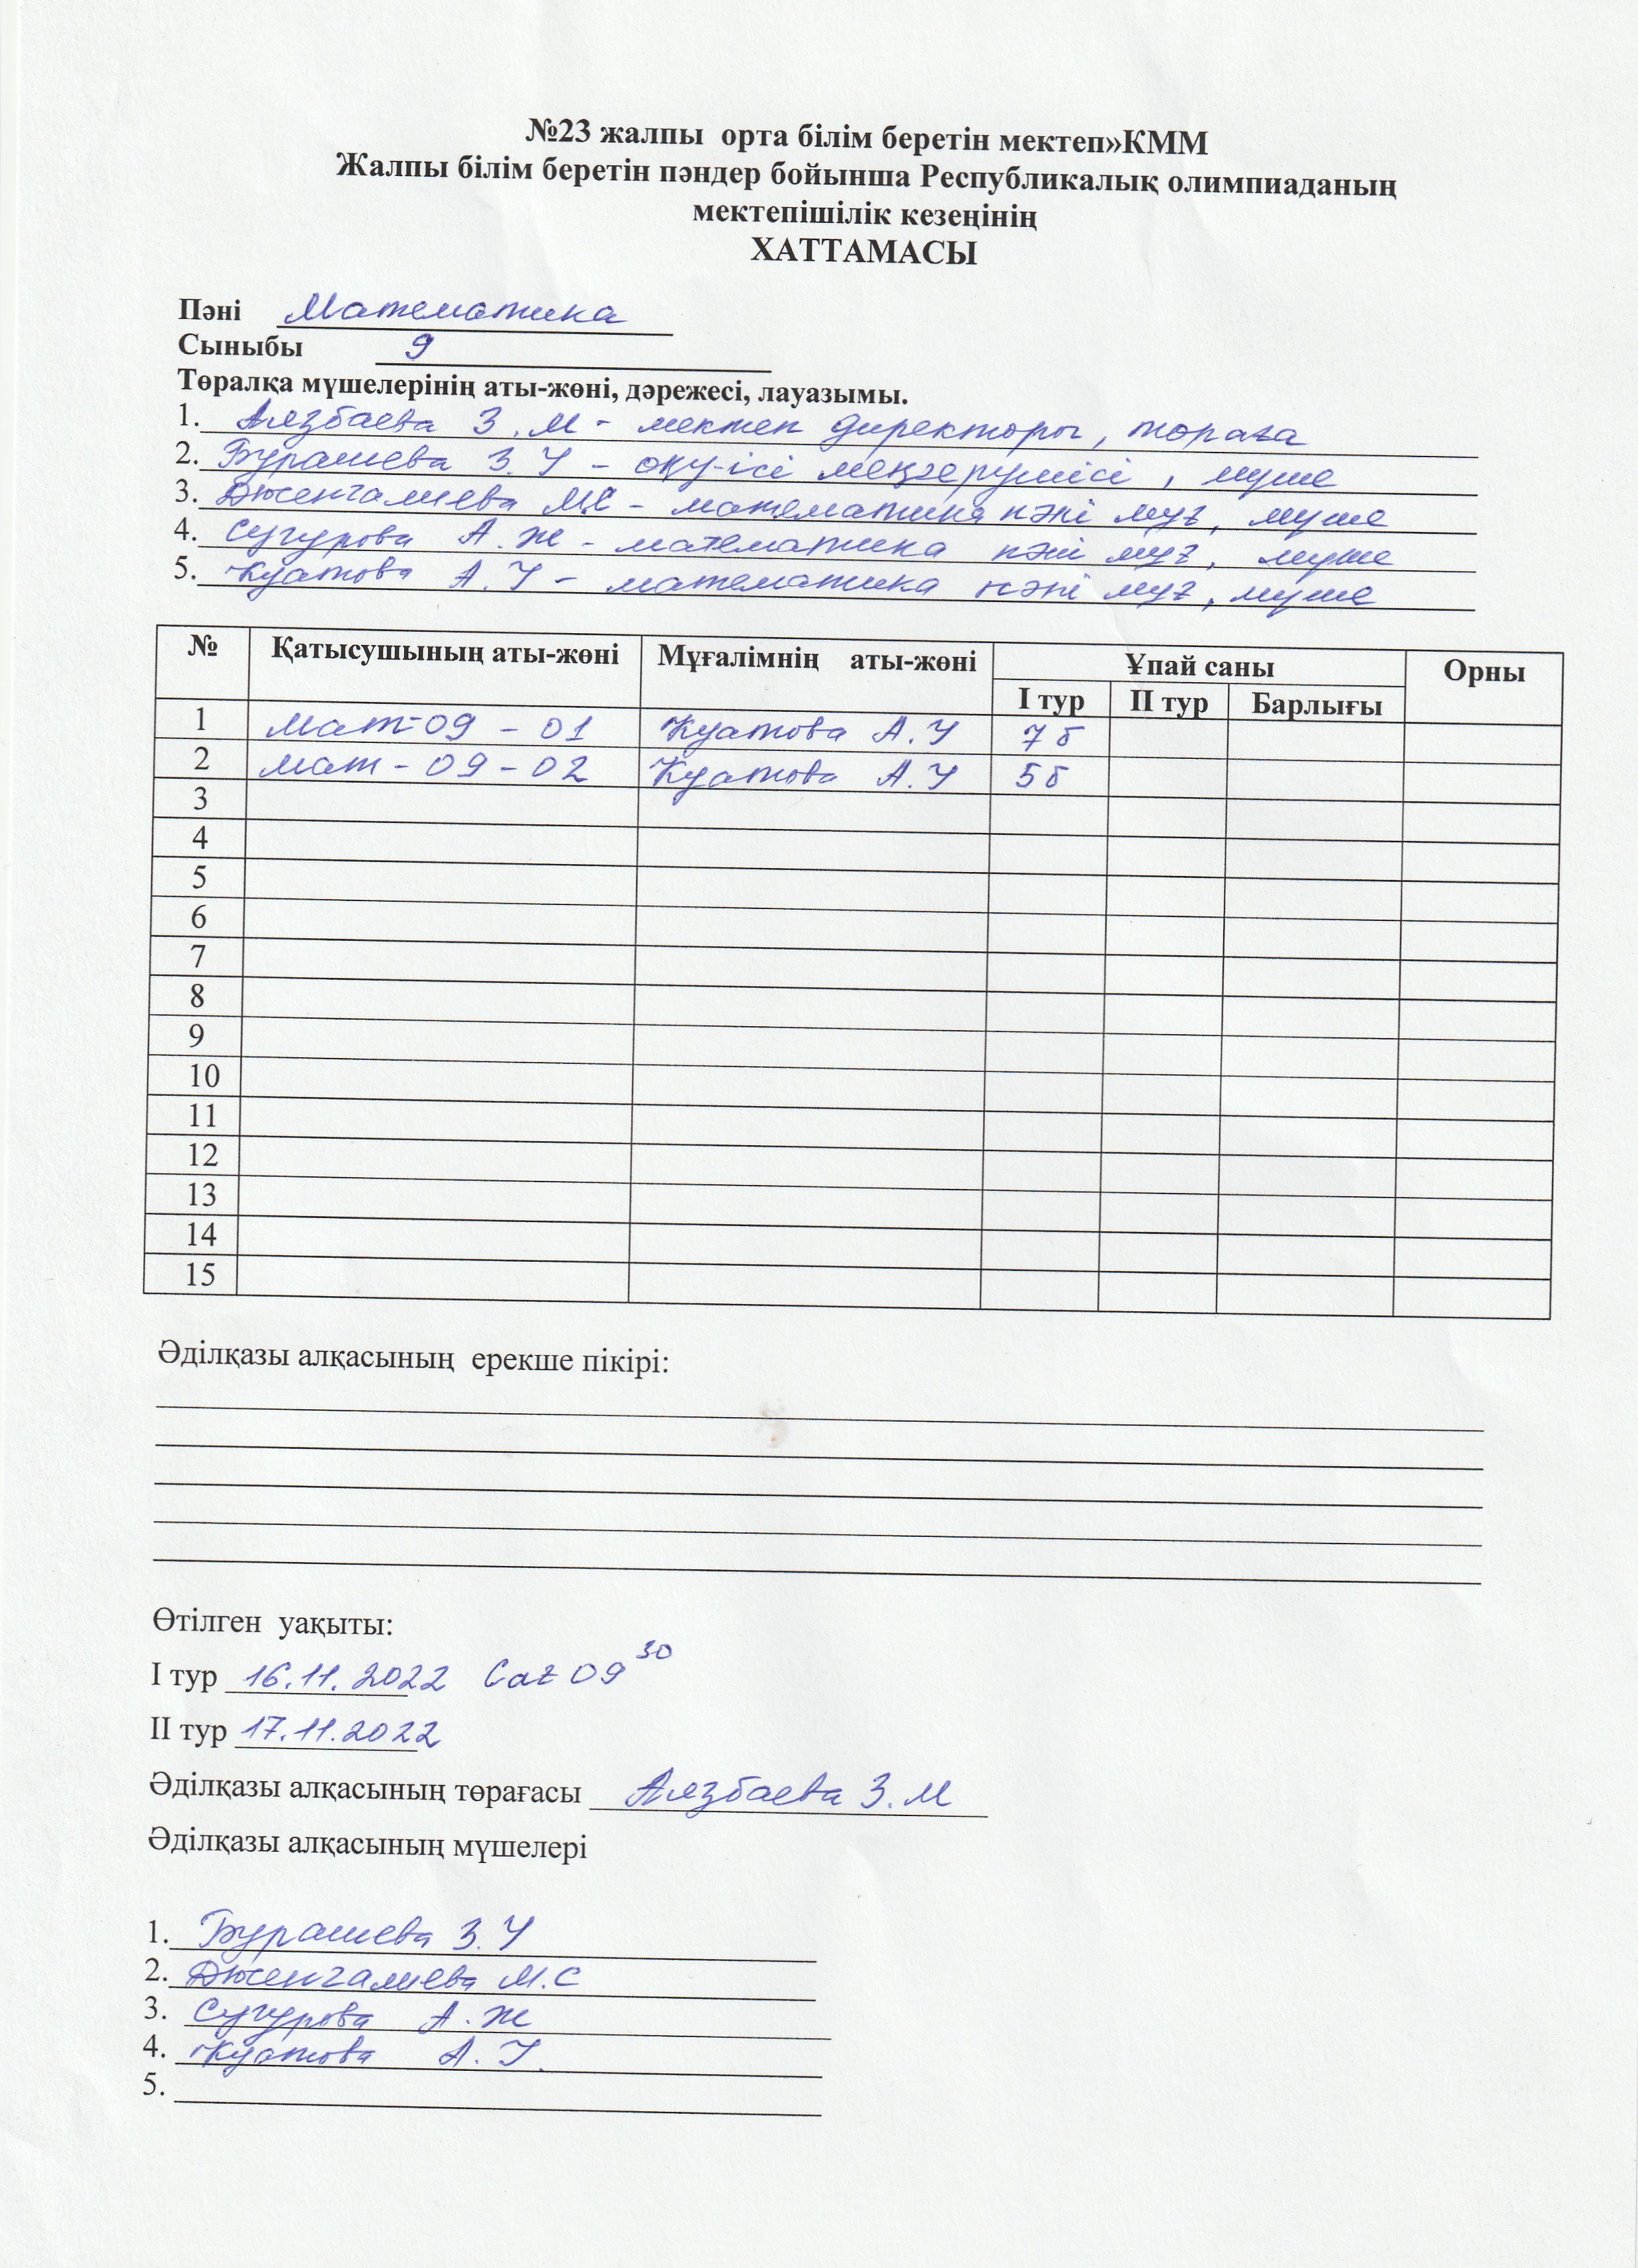 №23 жалпы орта білім беретін мектеп»КММ
Жалпы білім беретін пәндер бойынша Республикалық олимпиаданың
мектепішілік кезеңінің
ХАТТАМАСЫ
Пәні Математика
Сыныбы 9
Төралқа мүшелерінің аты-жөні, дәрежесі, лауазымы.
1. Аязбаева З.М - мектеп директоры, төраға
2. Бурашева З.У - оқу-ісі меңгерушісі, мүше
3. Дженгалиева М.С - математика пәні мұғ, мүше
4. Сугурова А.Ж - математика пәні мұғ, мүше
5. Куатова А.У - математика пәні мұғ, мүше
№ Қатысушының аты-жөні Мұғалімнің аты-жөні Ұпай саны Орны
І тур ІІ тур Барлығы
1 мат-09-01 Куатова А.У 7б
2 мат-09-02 Куатова А.У 5б
3
4
5
6
7
8
9
10
11
12
13
14
15
Әділқазы алқасының ерекше пікірі:
Өтілген уақыты:
І тур 16.11.2022 Сағ 09 30
ІІ тур 17.11.2022
Әділқазы алқасының төрағасы Аязбаева З.М
Әділқазы алқасының мүшелері
1. Бурашева З.У
2. Дженгалиева М.С
3. Сугурова А.Ж
4. Куатова А.У.
5.